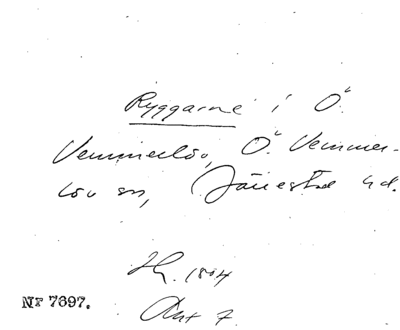 Ryggarne i Ö.
Vemmerlöv, Ö. Vemmer-
löv sn, Järrestad hd.
1804
NF 7697.
Ant 7